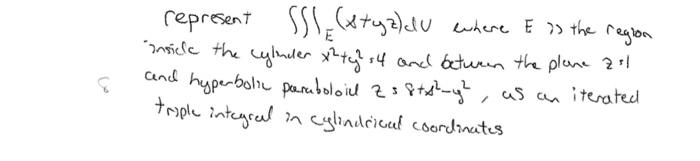 represent ∭_E (x+yz)dV where E is the region
inside the cylinder x²+y²=4 and between the plane z=1
and hyperbolic paraboloid z=8+x²-y², as an iterated
triple integral in cylindrical coordinates